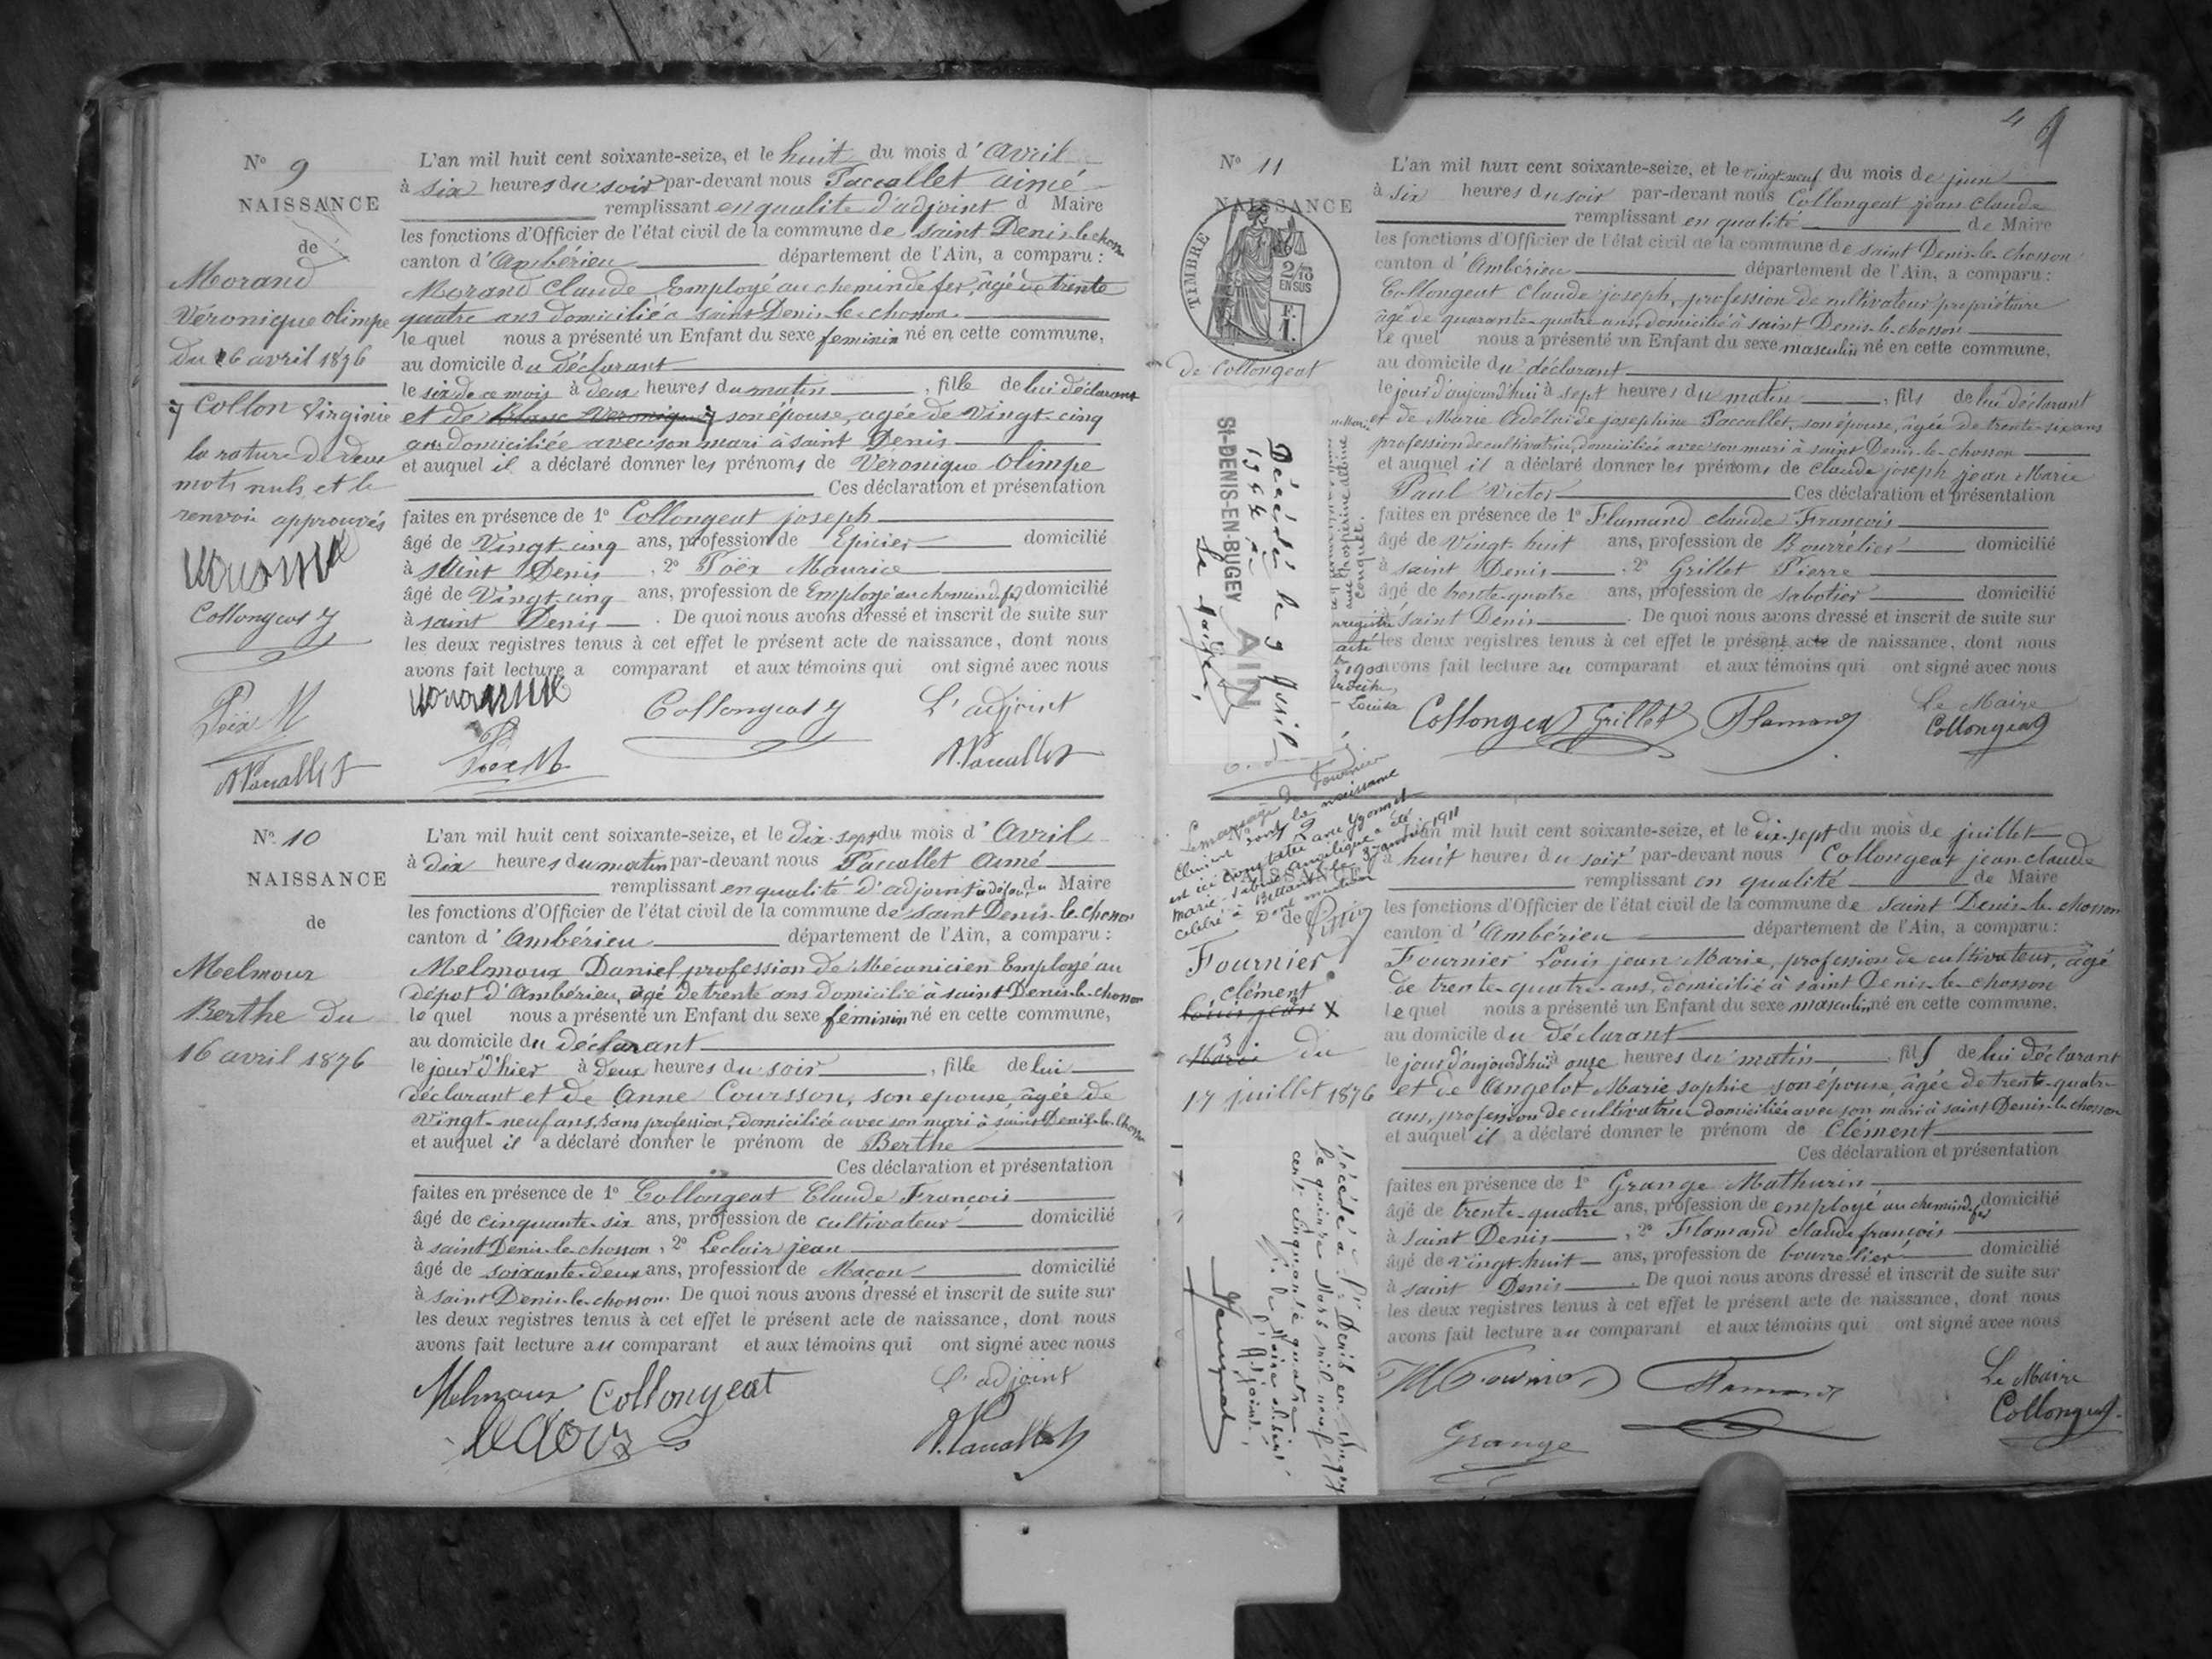 N° 9
NAISSANCE
de
Morand
Véronique Olimpe
du 6 avril 1876
Collon Virginie
la rature de deux
mots nuls et le
renvoi approuvés
Collongeat J
Poëx M
A. Paccallet
L'an mil huit cent soixante-seize, et le huit du mois d'Avril
à six heures du soir par-devant nous Paccallet aimé
remplissant en qualité d'adjoint d Maire
les fonctions d'Officier de l'état civil de la commune de saint Denis-le-chosson
canton d'Ambérieu département de l'Ain, a comparu :
Morand Claude, Employé au chemin de fer, âgé de trente
quatre ans domicilié à saint Denis-le-chosson
le quel nous a présenté un Enfant du sexe feminin né en cette commune,
au domicile du déclarant
le six de ce mois à deux heures du matin, fille de lui déclarant
et de Blanc Véronique son épouse, agée de Vingt-cinq
ans domiciliée avec son mari à saint Denis
et auquel il a déclaré donner les prénoms de Véronique Olimpe
Ces déclaration et présentation
faites en présence de 1° Collongeat joseph
âgé de Vingt-cinq ans, profession de Epicier domicilié
à saint Denis, 2° Poëx Maurice
âgé de Vingt-cinq ans, profession de Employé au chemin de fer domicilié
à saint Denis. De quoi nous avons dressé et inscrit de suite sur
les deux registres tenus à cet effet le présent acte de naissance, dont nous
avons fait lecture a comparant et aux témoins qui ont signé avec nous
Collongeat J
L'adjoint
Poëx M
A. Paccallet
N° 10
NAISSANCE
de
Melmoux
Berthe du
16 avril 1876
L'an mil huit cent soixante-seize, et le Dix-sept du mois d'Avril
à dix heures du matin par-devant nous Paccallet Aimé
remplissant en qualité d'adjoint à défaut du Maire
les fonctions d'Officier de l'état civil de la commune de saint Denis-le-chosson
canton d'Ambérieu département de l'Ain, a comparu :
Melmoux Daniel profession de Mécanicien Employé au
dépot d'Ambérieu, âgé de trente ans domicilié à saint Denis-le-chosson
le quel nous a présenté un Enfant du sexe feminin né en cette commune,
au domicile du déclarant
le jour d'hier à deux heures du soir, fille de lui
déclarant et de Anne Coursson, son epouse, âgée de
Vingt-neuf ans, Sans profession, domiciliée avec son mari à saint Denis-le-chosson
et auquel il a déclaré donner le prénom de Berthe
Ces déclaration et présentation
faites en présence de 1° Collongeat Claude François
âgé de cinquante-six ans, profession de cultivateur domicilié
à saint Denis-le-chosson, 2° Leclair jean
âgé de soixante-deux ans, profession de Maçon domicilié
à saint Denis-le-chosson. De quoi nous avons dressé et inscrit de suite sur
les deux registres tenus à cet effet le présent acte de naissance, dont nous
avons fait lecture au comparant et aux témoins qui ont signé avec nous
Melmoux Collongeat
L'adjoint
A. Paccallet
4
N° 11
NAISSANCE
TIMBRE
2/10
EN SUS
F.
1.
de Collongeat
Décédé le 9 Avril
ST-DENIS-EN-BUGEY AIN
Le Maire,
L'an mil huit cent soixante-seize, et le vingt neuf du mois de juin
à six heures du soir par-devant nous Collongeat jean claude
remplissant en qualité de Maire
les fonctions d'Officier de l'état civil de la commune de saint Denis-le-chosson
canton d'Ambérieu département de l'Ain, a comparu :
Collongeat Claude joseph, profession de cultivateur propriétaire
âgé de quarante-quatre ans, domicilié à saint Denis-le-chosson
le quel nous a présenté un Enfant du sexe masculin né en cette commune,
au domicile du déclarant
le jour d'aujourd'hui à sept heures du matin, fils de lui déclarant
et de Marie Adélaïde josephine Paccallet, son épouse, âgée de trente-six ans
profession de cultivatrice, domiciliée avec son mari à saint Denis-le-chosson
et auquel il a déclaré donner les prénoms de claude joseph jean Marie
Paul Victor Ces déclaration et présentation
faites en présence de 1° Flamand claude François
âgé de Vingt-huit ans, profession de Bourrelier domicilié
à saint Denis, 2° Grillet Pierre
âgé de trente-quatre ans, profession de sabotier domicilié
à saint Denis. De quoi nous avons dressé et inscrit de suite sur
les deux registres tenus à cet effet le présent acte de naissance, dont nous
avons fait lecture au comparant et aux témoins qui ont signé avec nous
Collongeat Grillet Flamand
Le Maire
Collongeat
NAISSANCE
de
Fournier
Clément
Louis jean
Marie du
17 juillet 1876
décédé à St Denis en Bugey
le quinze Mars mil neuf
cent cinquante quatre
L'Adjoint,
L'an mil huit cent soixante-seize, et le dix-sept du mois de juillet
à huit heures du soir par-devant nous Collongeat jean claude
remplissant en qualité de Maire
les fonctions d'Officier de l'état civil de la commune de saint Denis-le-chosson
canton d'Ambérieu département de l'Ain, a comparu :
Fournier Louis jean Marie, profession de cultivateur, âgé
de trente-quatre ans, domicilié à saint Denis-le-chosson
le quel nous a présenté un Enfant du sexe masculin né en cette commune,
au domicile du déclarant
le jour d'aujourd'hui à onze heures du matin, fils de lui déclarant
et de Angelot Marie sophie son épouse, âgée de trente-quatre
ans, profession de cultivatrice domiciliée avec son mari à saint Denis-le-chosson
et auquel il a déclaré donner le prénom de Clément
Ces déclaration et présentation
faites en présence de 1° Grange Mathurin
âgé de trente-quatre ans, profession de employé au chemin de fer domicilié
à saint Denis, 2° Flamand claude françois
âgé de vingt-huit ans, profession de bourrelier domicilié
à saint Denis. De quoi nous avons dressé et inscrit de suite sur
les deux registres tenus à cet effet le présent acte de naissance, dont nous
avons fait lecture au comparant et aux témoins qui ont signé avec nous
Flamand
Grange
Le Maire
Collongeat